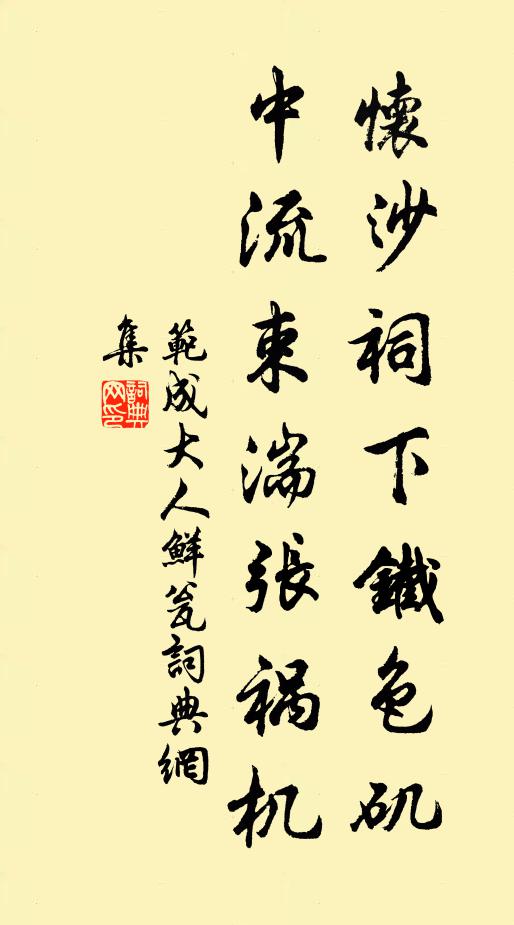 懷沙祠下鐵色矶
中流束湍張禍机
範成大人鮮瓮詞典網
集
詞典網印